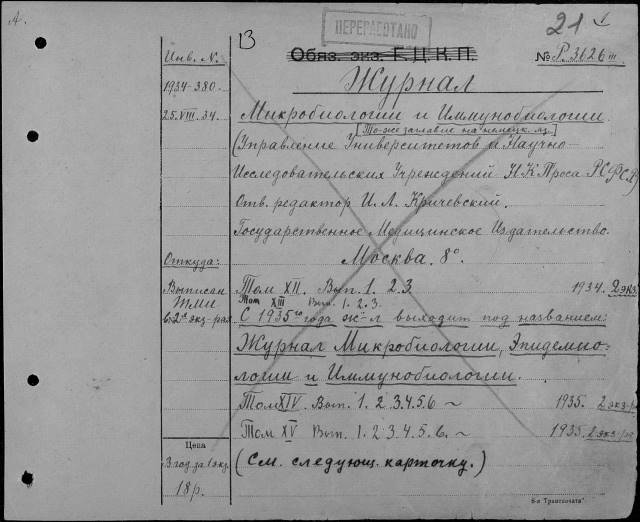 А.
ПЕРЕРАБОТАНО
21
13
Обяз. экз. Г.Ц.К.П.
№ Р.3626 ш
Инв. N.
1934-380.
25.VIII.34.
Журнал
Микробиологии и Иммунобиологии.
[То-же заглавие на немецк. яз.]
(Управление Университетов и Научно-
Исследовательских Учреждений НКПроса РСФСР)
Отв. редактор И.Л. Кричевский.
Государственное Медицинское Издательство.
Москва. 8°.
Откуда:
Выписан
Том XII. Вып. 1. 2. 3 1934. 2 экз.
Том XIII Вып. 1. 2. 3.
С 1935го года ж-л выходит под названием:
Журнал Микробиологии, Эпидемио-
логии и Иммунобиологии.
Том XIV. Вып. 1. 2. 3. 4. 5. 6 ~ 1935. 2 экз-ра
Том XV Вып. 1. 2. 3. 4. 5. 6. ~ 1935. 2 экз-ра
(См. следующ. карточку.)
Цена
В год за 1 экз.
18 р.
6-я Транспечати"